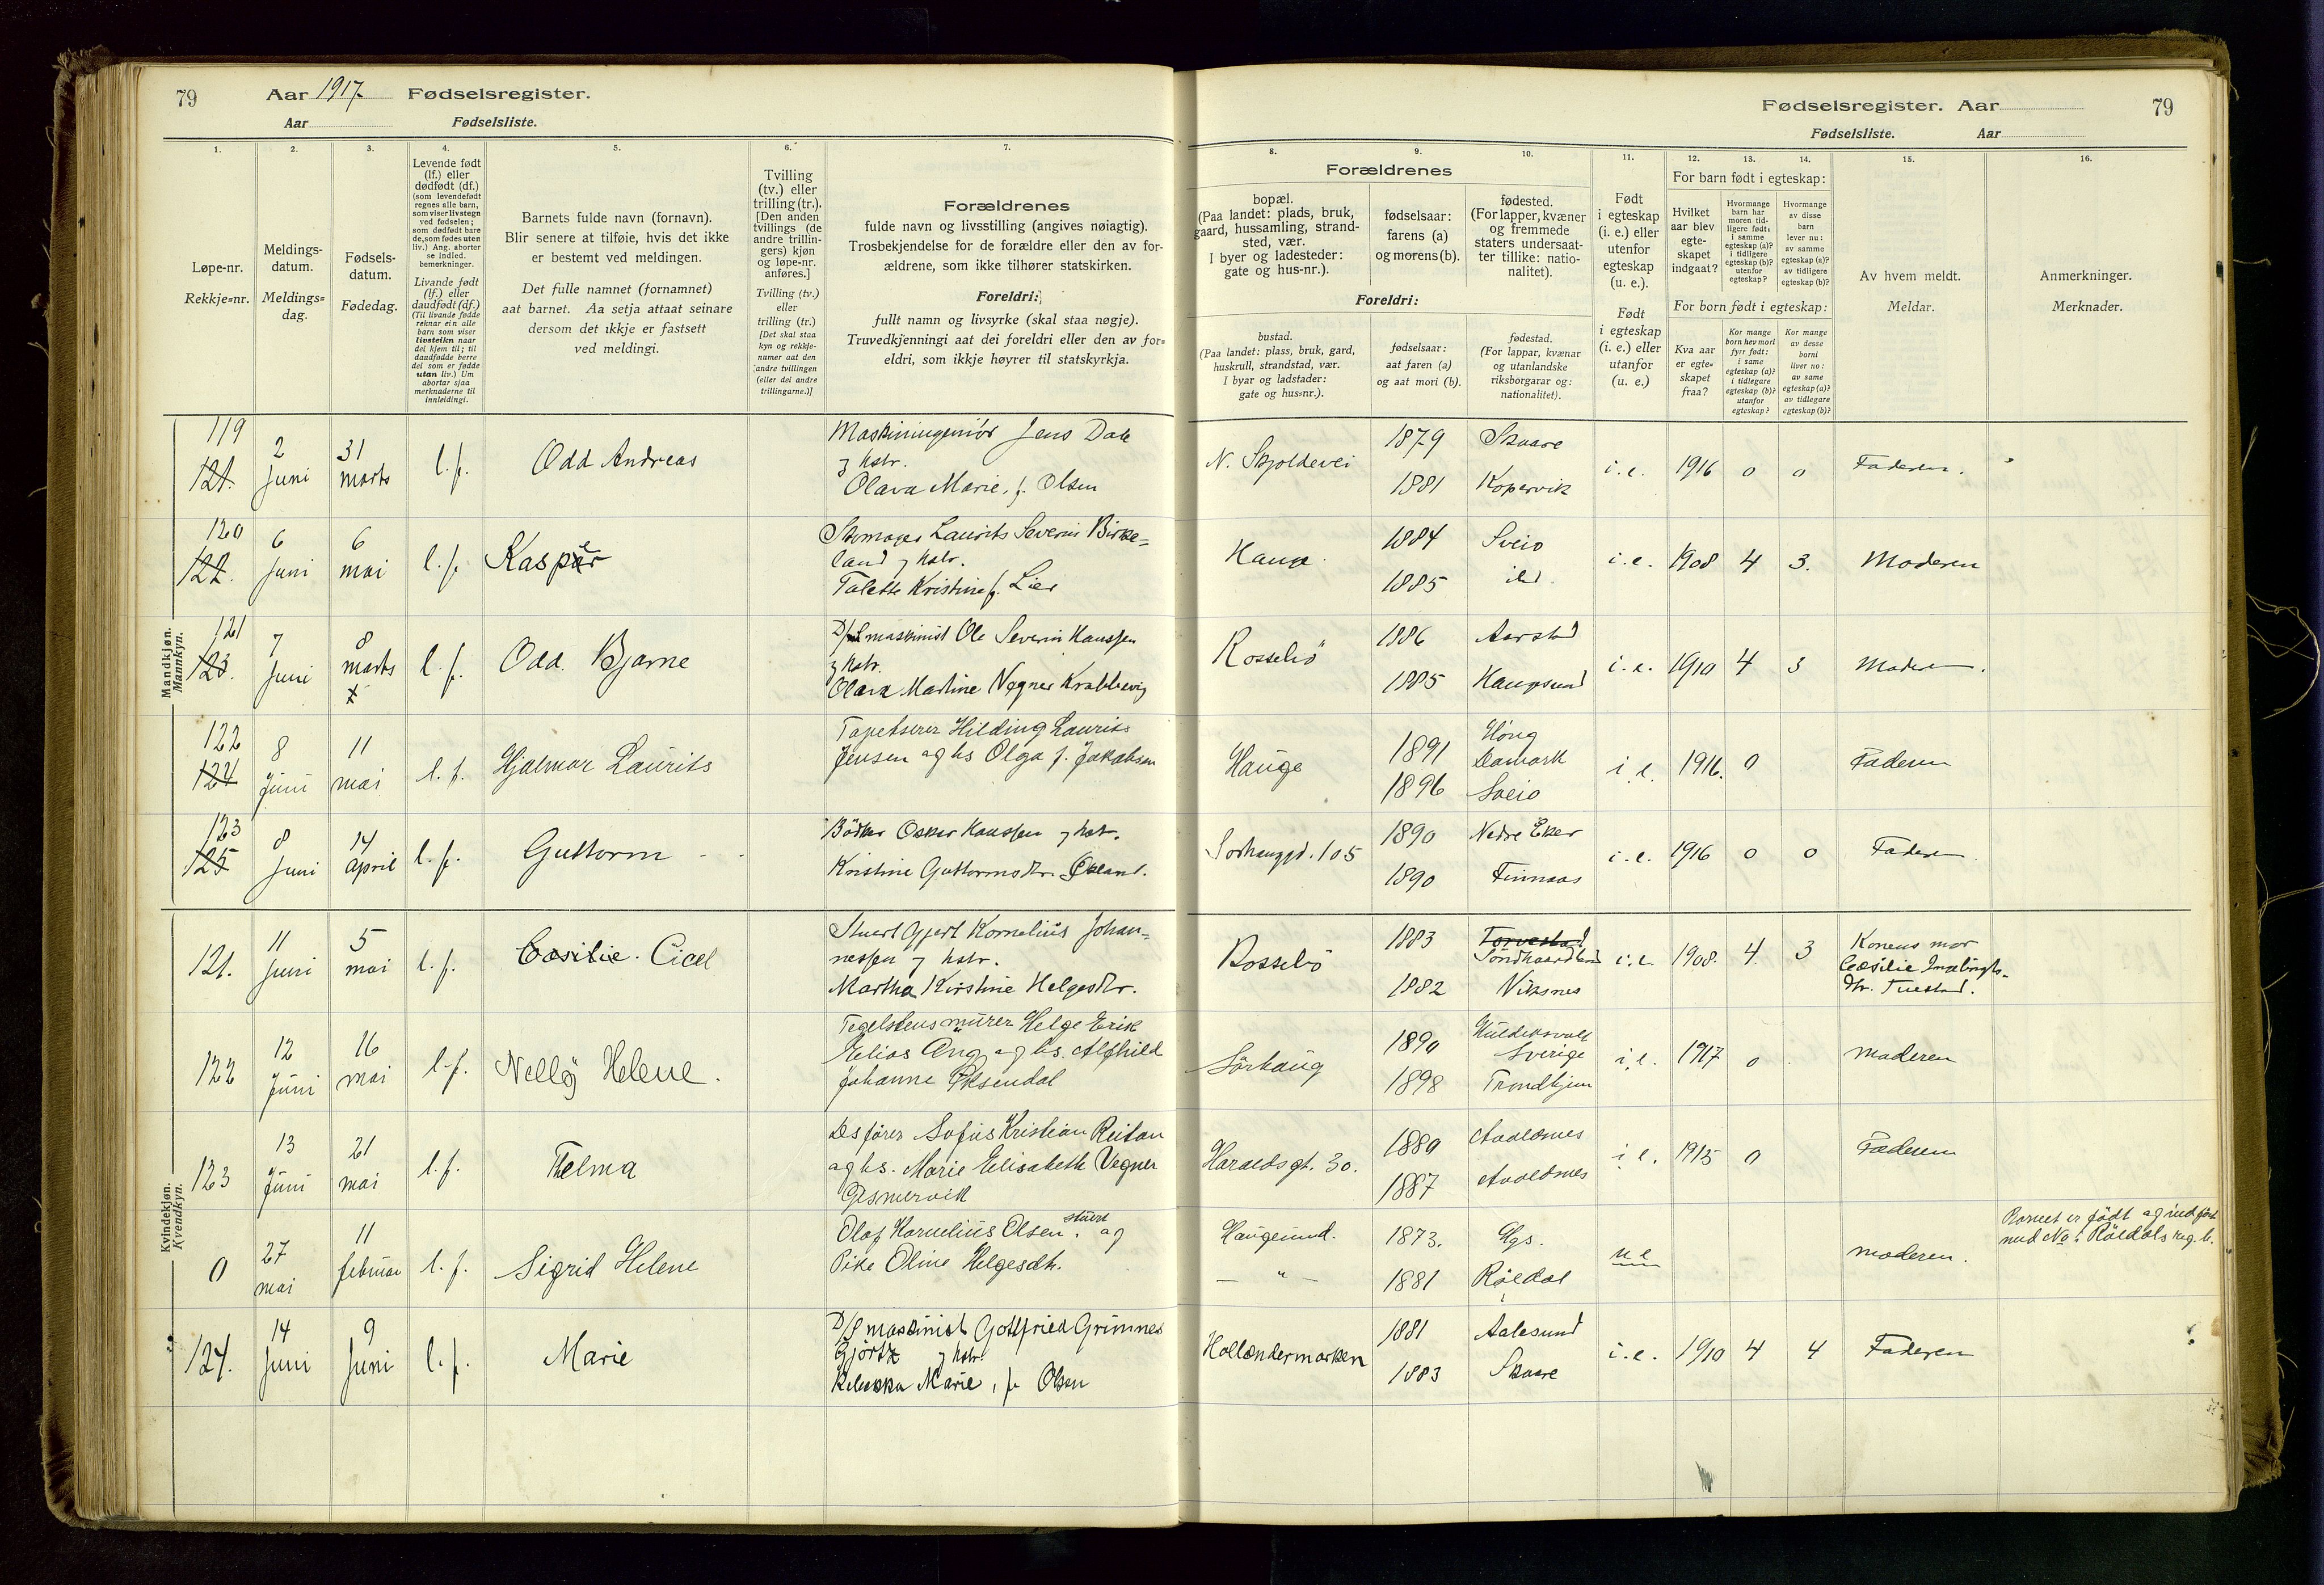 79 Aar 1917 Fødselsregister.
Aar Fødselsliste.
Fødselsregister. Aar 79
Fødselsliste. Aar
1. 2. 3. 4. 5. 6. 7.
8. 9. 10. 11. 12. 13. 14. 15. 16.
Løpe-nr.
Rekkje=nr.
Meldings-
datum.
Meldings=
dag.
Fødsels-
datum.
Fødedag.
Levende født
(lf.) eller
dødfødt (df.)
(som levendefødt
regnes alle barn,
som viser livstegn
ved fødselen;
som dødfødt bare
de, som fødes uten
liv.) Ang. aborter
se indled.
bemerkninger.
Livande født
(lf.) eller
daudfødt (df.)
(Til livande fødde
reknar ein alle
barn som viser
livsteikn naar
dei kjem til; til
daudfødde berre
dei som er fødde
utan liv.) Um
abortar sjaa
merknaderne til
innleidingi.
Barnets fulde navn (fornavn).
Blir senere at tilføie, hvis det ikke
er bestemt ved meldingen.
Det fulle namnet (fornamnet)
aat barnet. Aa setja attaat seinare
dersom det ikkje er fastsett
ved meldingi.
Tvilling
(tv.) eller
trilling (tr.).
[Den anden
tvillings (de
andre trillin-
gers) kjøn
og løpe-nr.
anføres.]
Tvilling (tv.)
eller
trilling (tr.)
[Det skal staa
kyn og rekkje-
numer aat den
andre tvillingen
(eller dei andre
trillingarne.)]
Forældrenes
fulde navn og livsstilling (angives nøiagtig).
Trosbekjendelse for de forældre eller den av for-
ældrene, som ikke tilhører statskirken.
Foreldri:
fullt namn og livsyrke (skal staa nøgje).
Truvedkjenningi aat dei foreldri eller den av for=
eldri, som ikkje høyrer til statskyrkja.
Forældrenes
bopæl.
(Paa landet: plads, bruk,
gaard, hussamling, strand-
sted, vær.
I byer og ladesteder:
gate og hus-nr.).
fødselsaar:
farens (a)
og morens (b).
fødested.
(For lapper, kvæner
og fremmede
staters undersaat-
ter tillike: natio-
nalitet).
Foreldri:
bustad.
(Paa landet: plass, bruk, gard,
huskrull, strandstad, vær.
I byar og ladstader:
gate og hus=nr.).
fødselsaar:
aat faren (a)
og aat mori (b).
fødestad.
(For lappar, kvænar
og utanlandske
riksborgarar og:
nationalitet).
Født
i egteskap
(i. e.) eller
utenfor
egteskap
(u. e.).
Født
i egteskap
(i. e.) eller
utanfor
(u. e.)
For barn født i egteskap:
Hvilket
aar blev
egte-
skapet
indgaat?
Hvormange
barn har
moren tid-
ligere født:
i samme
egteskap (a)?
i tidligere
egteskap (b)?
utenfor
egteskap?
Hvormange
av disse
barn
lever nu:
av samme
egteskap (a)?
av tidligere
egteskap (b)?
For born født i egteskap:
Kva aar
er egte=
skapet
fraa?
Kor mange
born hev mori
fyrr født:
i same
egteskap (a)?
i tidlegare
egteskap (b)?
utanfor
egteskap?
Kor mange
av desse
borni
liver no:
av same
egteskap (a)?
av tidlegare
egteskap (b)?
Av hvem meldt.
Meldar.
Anmerkninger.
Merknader.
Mandkjøn.
Mannkyn.
119
121. 2 Juni 31 marts l. f. Odd Andreas
Maskiningeniør Jens Dale
og hstr.
Olava Marie, f. Olsen
N. Skjoldevei 1879 Skaare i. e. 1916 0 0 Faderen.
1881 Kopervik
120
122. 6 Juni 6 mai l. f. Kasper
Skomager Laurits Severin Birke=
land og hstr.
Talette Kristine f. Lier
Hauge 1884 Sveio i. e. 1908 4 3. Moderen
1885 ibd.
121
123. 7 Juni 8 marts l. f. Odd Bjarne
D/S maskinist Ole Severin Hanssen
og hstr.
Olava Martine Vegner Krabbevig
Rossebø 1886 Aarstad i. e. 1910 4 3 Moderen.
1885 Haugesund
122
124 8 Juni 11 mai l. f. Hjalmar Laurits
Tapetserer Hilding Laurits
Jensen og hs Olga f. Jakobsen
Hauge 1891 Høng Danmark i. e. 1916. 0 Faderen
1896 Sveio
123
125 8 Juni 14 april l. f. Guttorm
Bödker Oskar Hanssen og hstr.
Kristine Guttormsdtr. Økland.
Sørhauggt. 105 1890 Nedre Eker i. e. 1916 0 0 Faderen.
1890 Finnaas
Kvindekjøn.
Kvendkyn.
121. 11 Juni 5 mai l. f. Cæsilie. Cicel
Stuert Gjert Kornelius Johan=
nessen og hstr.
Martha Kirstine Helgesdtr.
Rossebø 1883 Torvestad i. e. 1908. 4. 3
1882 Viksnes
Konens mor
Cæsilie
dtr. Tuestad.
122 12 Juni 16 mai l. f. Nelly Helene.
Tegelstensmurer Helge Erik
Elias Ang og hs. Alfhild
Johanne Øksendal
Sörhaug 1890 Sverige i. e. 1917 0 Moderen
1898 Trondhjem
123 13 Juni 21 mai l. f. Thelma
Dsfører Sofus Kristian Reitan
og hs. Marie Elisabeth Vegner
Gismervik
Haraldsgt. 30. 1889 Avaldsnes i. e. 1915 0 Faderen
1887 Avaldsnes
0 27 mai 11 februar l. f. Sigrid Helene
Olaf Kornelius Olsen, stuert og
Pike Oline Helgesdtr.
Haugesund. 1873. Hgs. u e moderen.
— " — 1881 Røldal
Barnet er født og indført
med No. i Röldals reg. b.
124. 14 Juni 9 Juni l. f. Marie
D/S maskinist Gottfried Grimnes
Gjörtz og hstr.
Rebekka Marie, f. Olsen
Hollændermarken 1881 Aalesund i. e. 1910 4 4 Faderen
1883 Skaare